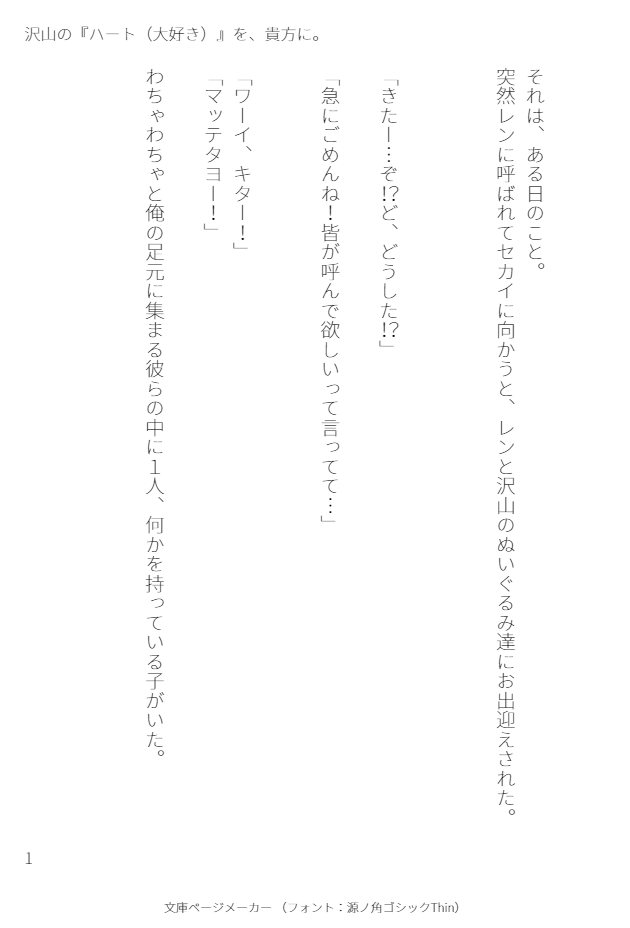 沢山の『ハート（大好き）』を、貴方に。
それは、ある日のこと。
突然レンに呼ばれてセカイに向かうと、レンと沢山のぬいぐるみ達にお出迎えされた。
「きたー…ぞ!?ど、どうした!?」
「急にごめんね！皆が呼んで欲しいって言ってて…」
「ワーイ、キター！」
「マッテタヨー！」
わちゃわちゃと俺の足元に集まる彼らの中に１人、何かを持っている子がいた。
1
文庫ページメーカー（フォント：源ノ角ゴシックThin）